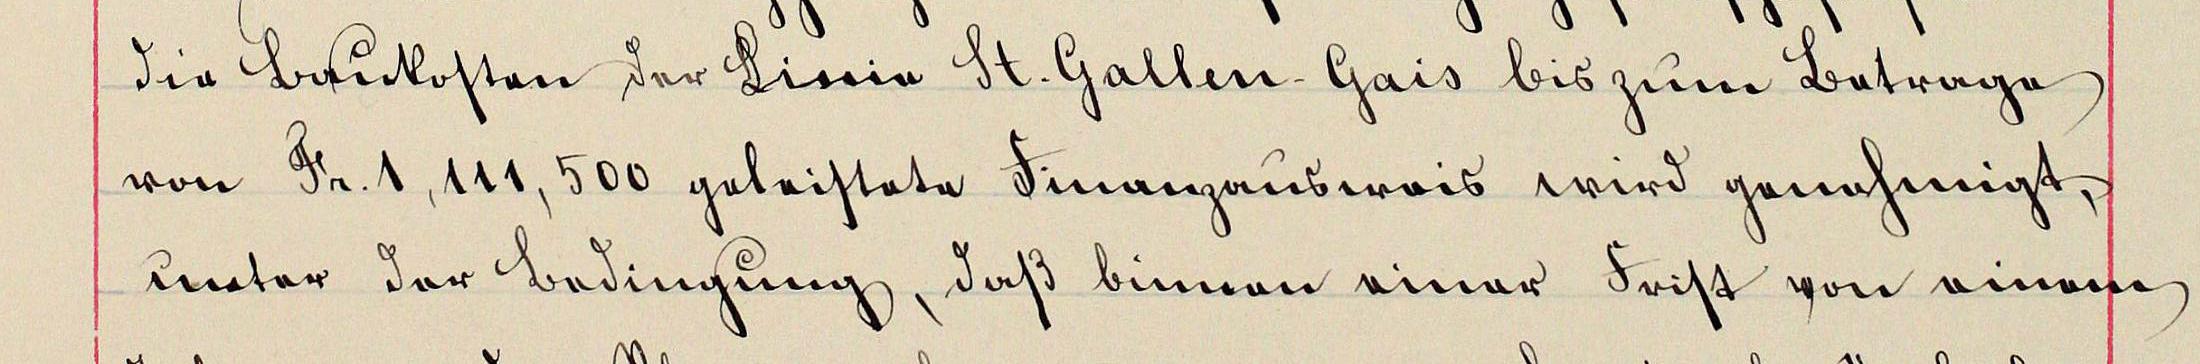 die Baukosten der Linie St. Gallen-Gais bis zum Betrage
von Fr. 1,111,500 geleistete Finanzausweis wird genehmigt,
unter der Bedingung, daß binnen einer Frist von einem